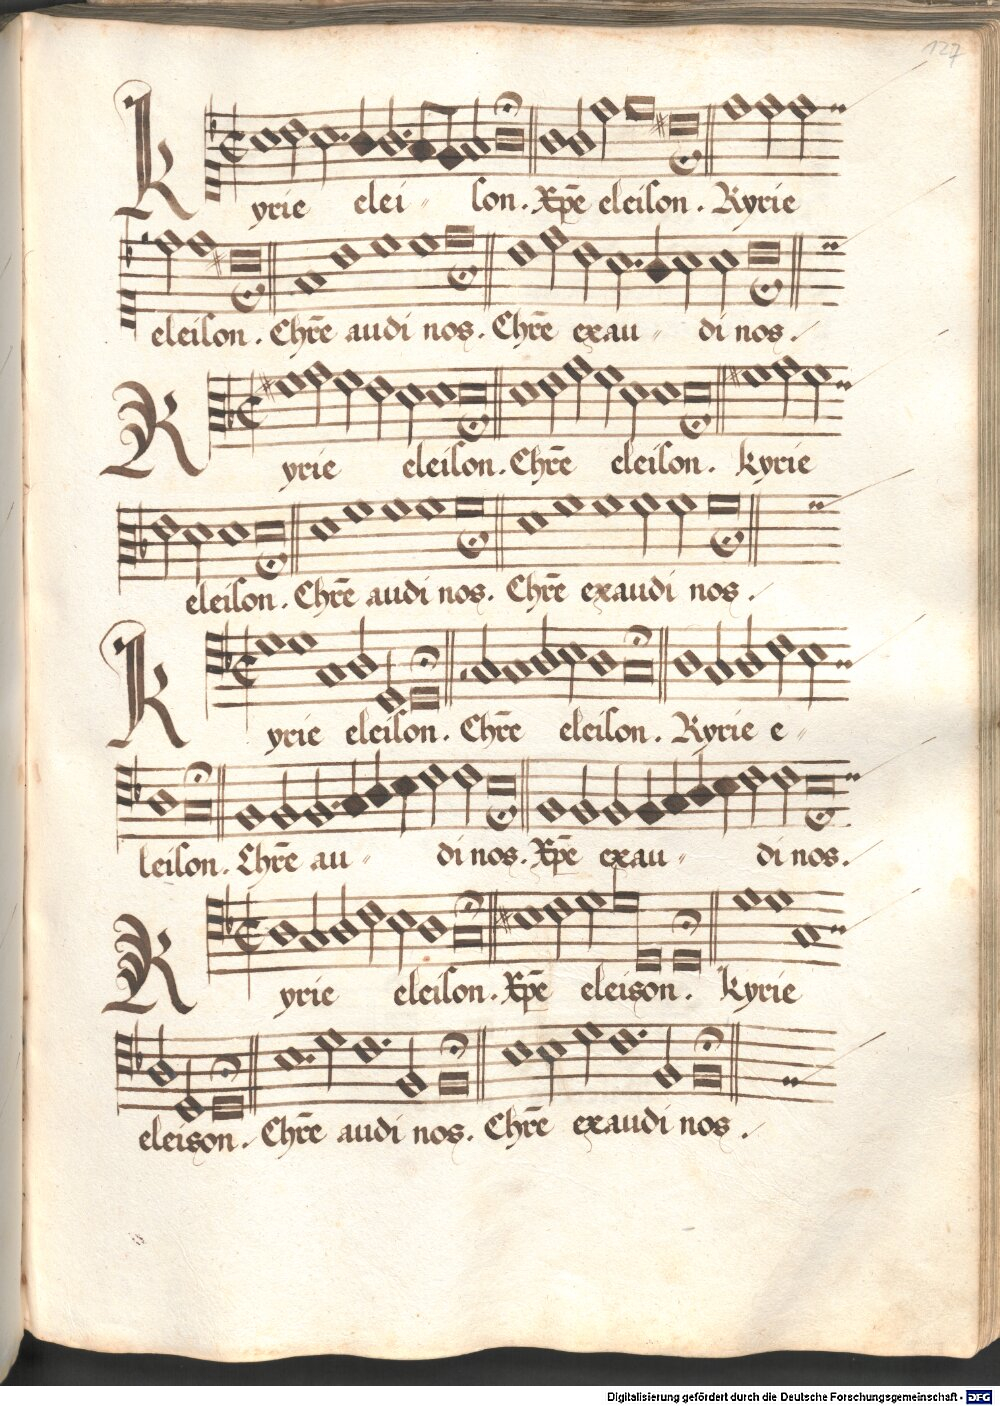 127
Kyrie elei - son. Xpē eleison. Kyrie
eleison. Chrē audi nos. Chrē exau - di nos.
Kyrie eleison. Chrē eleison. Kyrie
eleison. Chrē audi nos. Chrē exaudi nos.
Kyrie eleison. Chrē eleison. Kyrie e-
leison. Chrē au - di nos. Xpē exau - di nos.
Kyrie eleison. Xpē eleison. Kyrie
eleison. Chrē audi nos. Chrē exaudi nos.
Digitalisierung gefördert durch die Deutsche Forschungsgemeinschaft - DFG